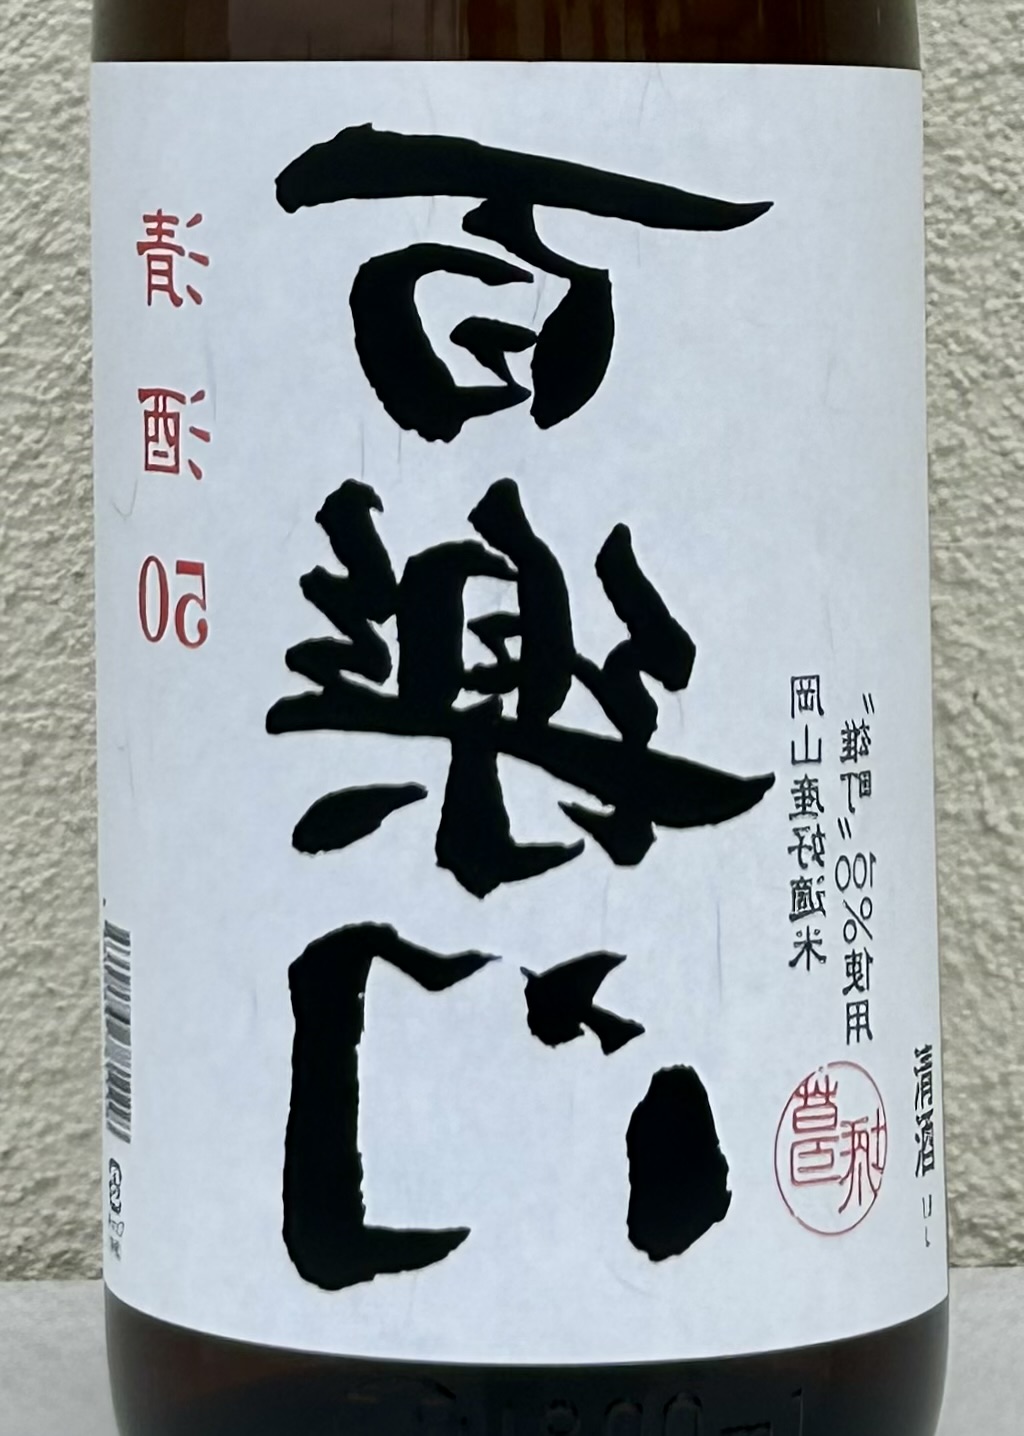 清酒50
百樂門
岡山産好適米
〝雄町〟100%使用
清酒